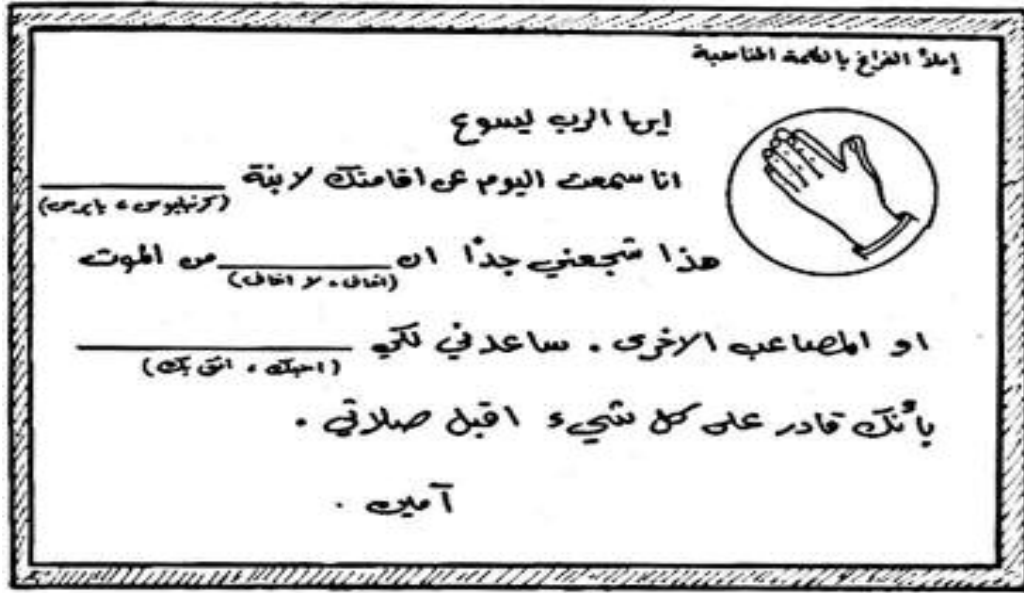 إملأ الفراغ بالكلمة المناسبة
ايها الرب ليسوع
انا سمعت اليوم عن اقامتك لابنة ________
(كرنيليوس ، يايرس)
هذا شجعني جدًا ان ________ من الموت
(اخاف ، لا اخاف)
او المصاعب الاخرى . ساعدني لكي ________
(احبك ، اثق بك)
بأنك قادر على كل شيء اقبل صلاتي .
آمين .